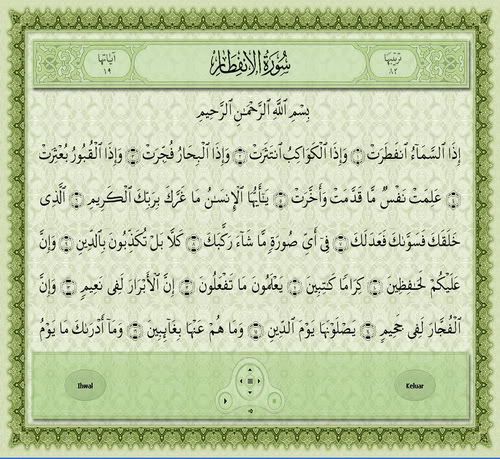 ترتيبها
٨٢
سُورَةُ الِانفِطَارِ
آياتها
١٩
بِسْمِ ٱللَّهِ ٱلرَّحْمَٰنِ ٱلرَّحِيمِ
إِذَا ٱلسَّمَآءُ ٱنفَطَرَتْ ۝١ وَإِذَا ٱلْكَوَاكِبُ ٱنتَثَرَتْ ۝٢ وَإِذَا ٱلْبِحَارُ فُجِّرَتْ ۝٣ وَإِذَا ٱلْقُبُورُ بُعْثِرَتْ
۝٤ عَلِمَتْ نَفْسٌ مَّا قَدَّمَتْ وَأَخَّرَتْ ۝٥ يَٰٓأَيُّهَا ٱلْإِنسَٰنُ مَا غَرَّكَ بِرَبِّكَ ٱلْكَرِيمِ ۝٦ ٱلَّذِى
خَلَقَكَ فَسَوَّىٰكَ فَعَدَلَكَ ۝٧ فِىٓ أَىِّ صُورَةٍ مَّا شَآءَ رَكَّبَكَ ۝٨ كَلَّا بَلْ تُكَذِّبُونَ بِٱلدِّينِ ۝٩ وَإِنَّ
عَلَيْكُمْ لَحَٰفِظِينَ ۝١٠ كِرَامًا كَٰتِبِينَ ۝١١ يَعْلَمُونَ مَا تَفْعَلُونَ ۝١٢ إِنَّ ٱلْأَبْرَارَ لَفِى نَعِيمٍ ۝١٣ وَإِنَّ
ٱلْفُجَّارَ لَفِى جَحِيمٍ ۝١٤ يَصْلَوْنَهَا يَوْمَ ٱلدِّينِ ۝١٥ وَمَا هُمْ عَنْهَا بِغَآئِبِينَ ۝١٦ وَمَآ أَدْرَىٰكَ مَا يَوْمُ
Ihwal
Keluar